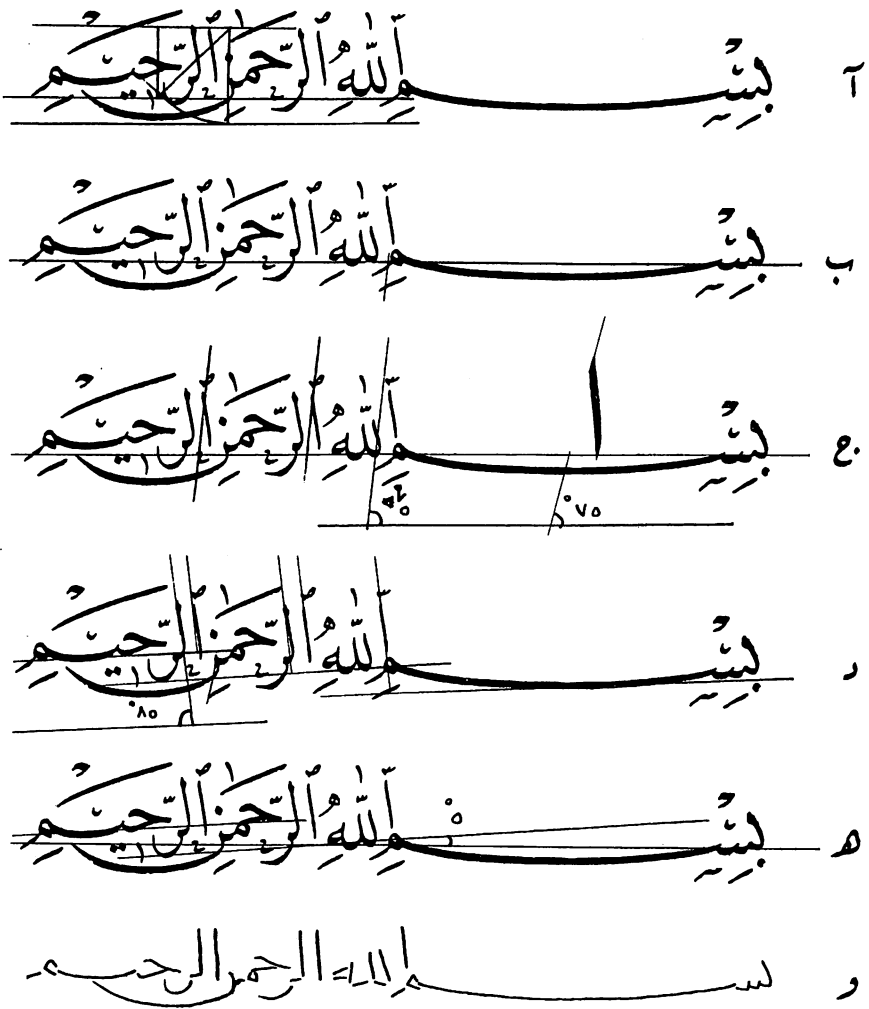 آ بِسْمِ ٱللَّهِ ٱلرَّحْمَٰنِ ٱلرَّحِيمِ
ب بِسْمِ ٱللَّهِ ٱلرَّحْمَٰنِ ٱلرَّحِيمِ
ج بِسْمِ ٱللَّهِ ٱلرَّحْمَٰنِ ٱلرَّحِيمِ
ا
°۷۵
د بِسْمِ ٱللَّهِ ٱلرَّحْمَٰنِ ٱلرَّحِيمِ
°۸۵
ه بِسْمِ ٱللَّهِ ٱلرَّحْمَٰنِ ٱلرَّحِيمِ
°۵
و بسم الله الرحمن الرحيم